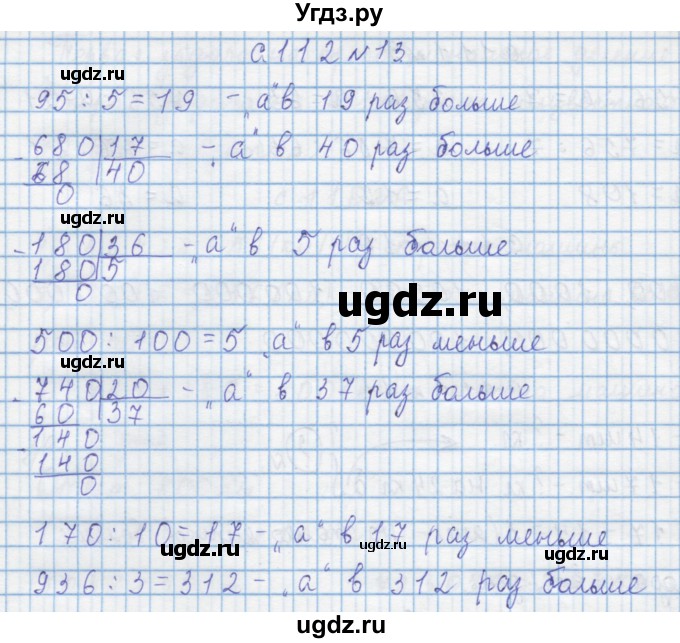 Угдз.ру
с. 112 №13
ugdz.ru
95 : 5 = 19 - „а“ в 19 раз больше
ugdz.ru
- 680 | 17 - „а“ в 40 раз больше
68 | 40
0
ugdz.ru
- 180 | 36 - „а“ в 5 раз больше
180 | 5
0
ugdz.ru
500 : 100 = 5 „а“ в 5 раз меньше
ugdz.ru
- 740 | 20 - „а“ в 37 раз больше
60 | 37
- 140
140
0
170 : 10 = 17 - „а“ в 17 раз меньше
ugdz.ru ugdz.ru ugdz.ru
936 : 3 = 312 - „а“ в 312 раз больше
ugdz.ru ugdz.ru